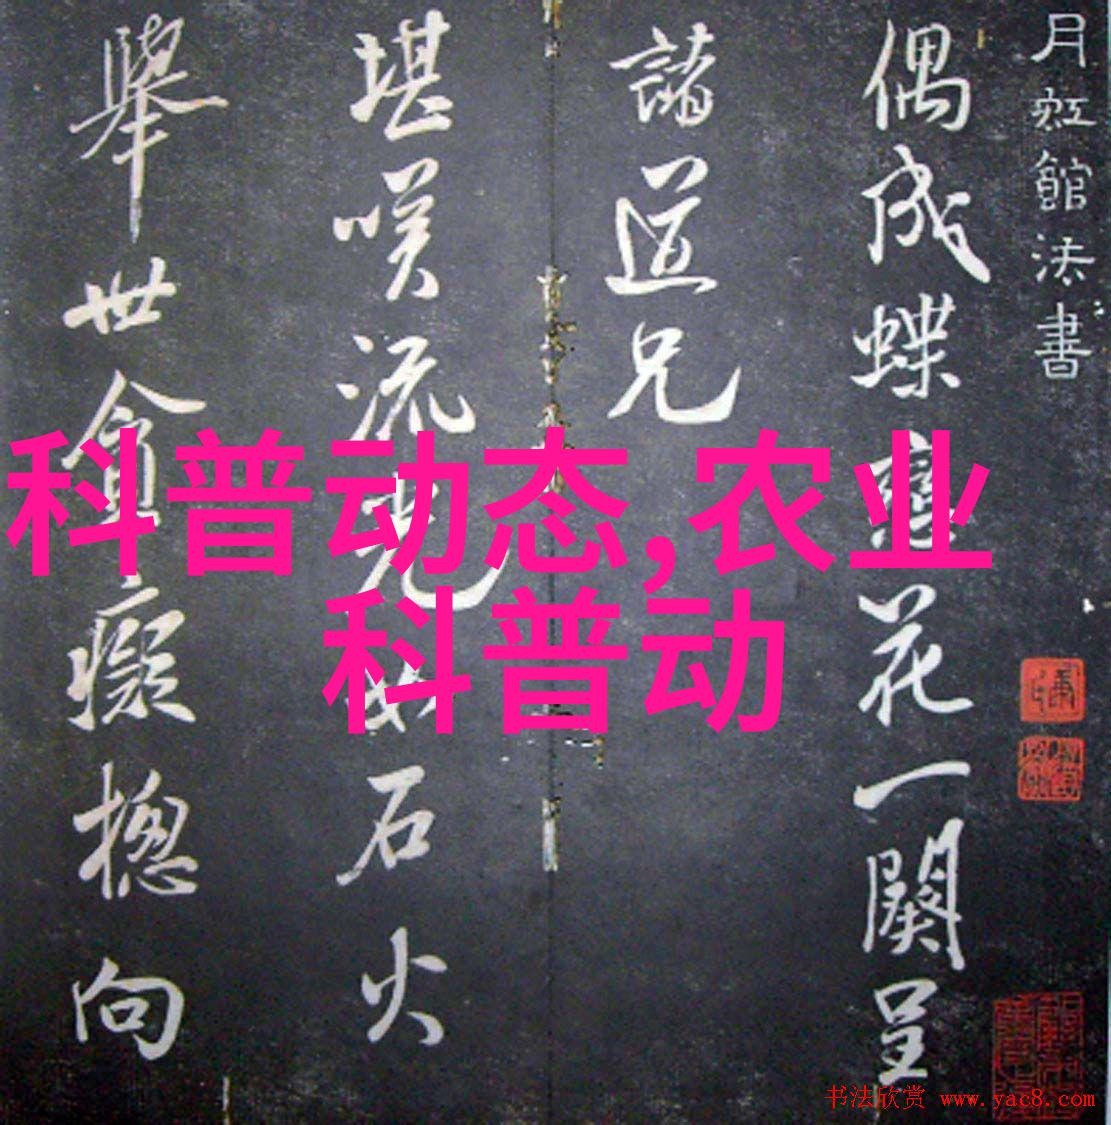 月虹館法書
偶成蝶戀花一闋呈
諸道兄
堪嘆流光如石火
舉世貪癡摠向
科普动态,农业
科普动
书法欣赏 www.yac8.com